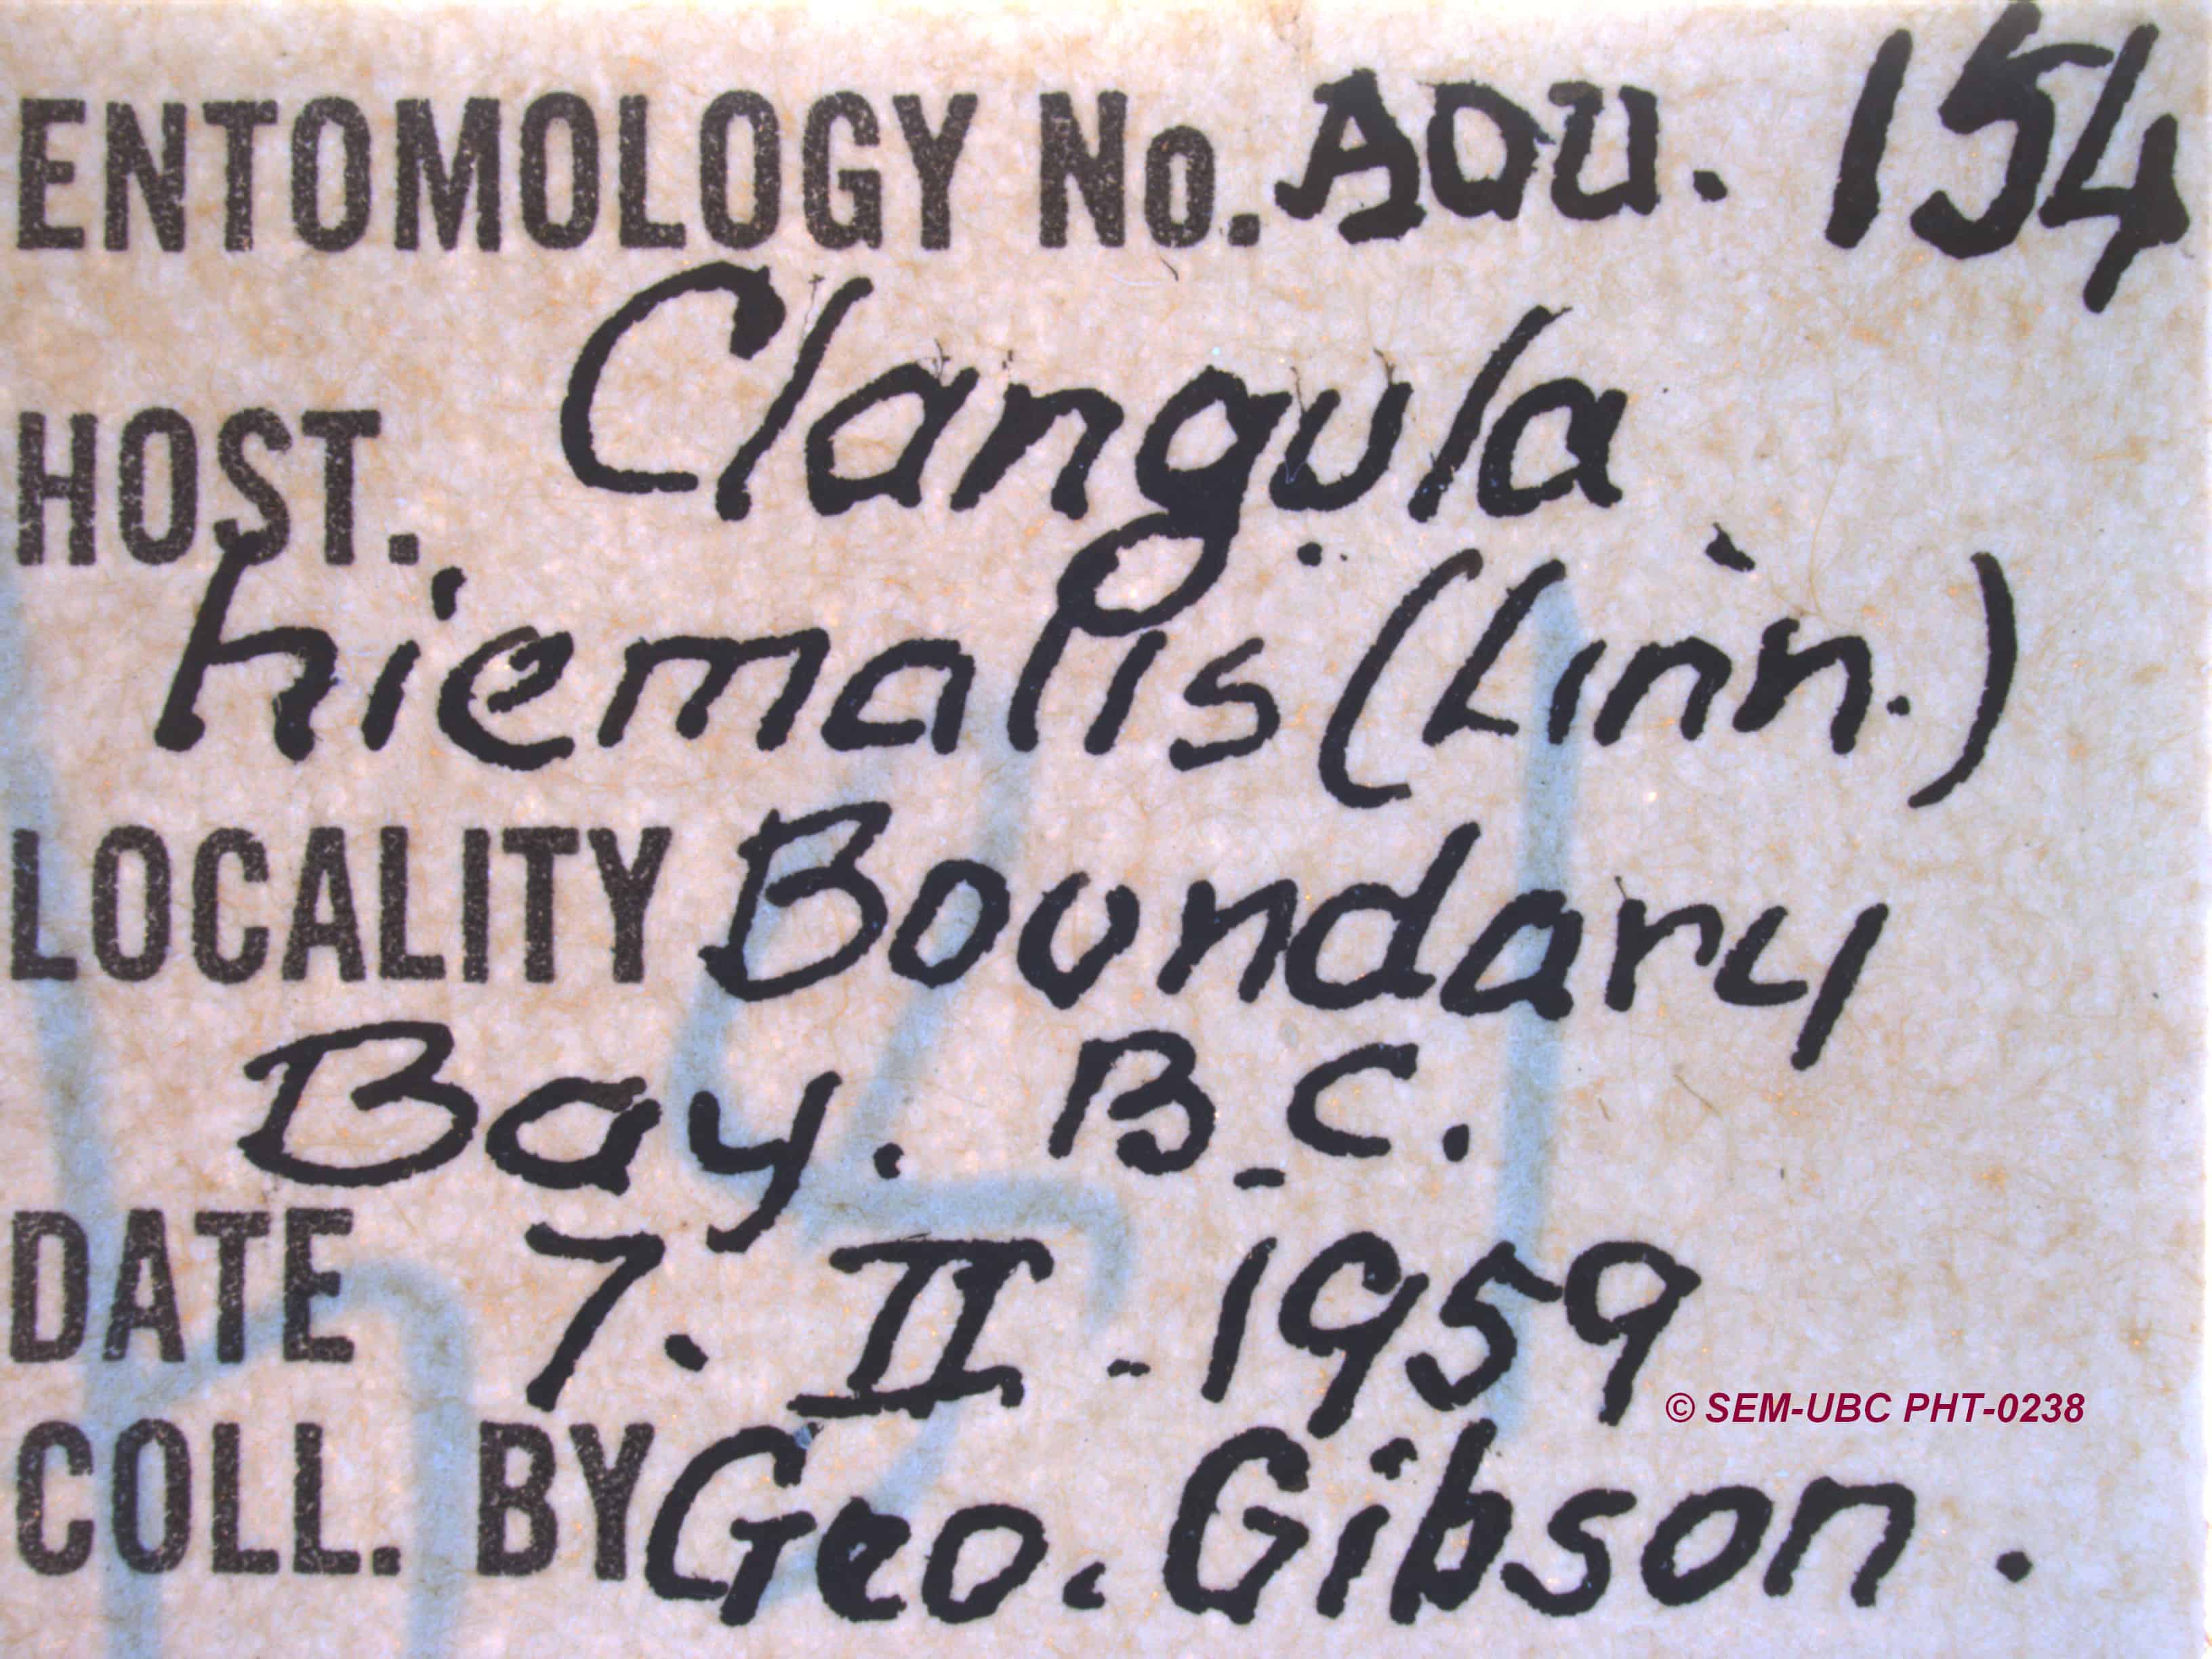 ENTOMOLOGY No. AOU. 154
Clangula
HOST.
hiemalis (Linn.)
LOCALITY Boundary
Bay. B.C.
DATE 7. II - 1959
© SEM-UBC PHT-0238
COLL. BY Geo. Gibson.